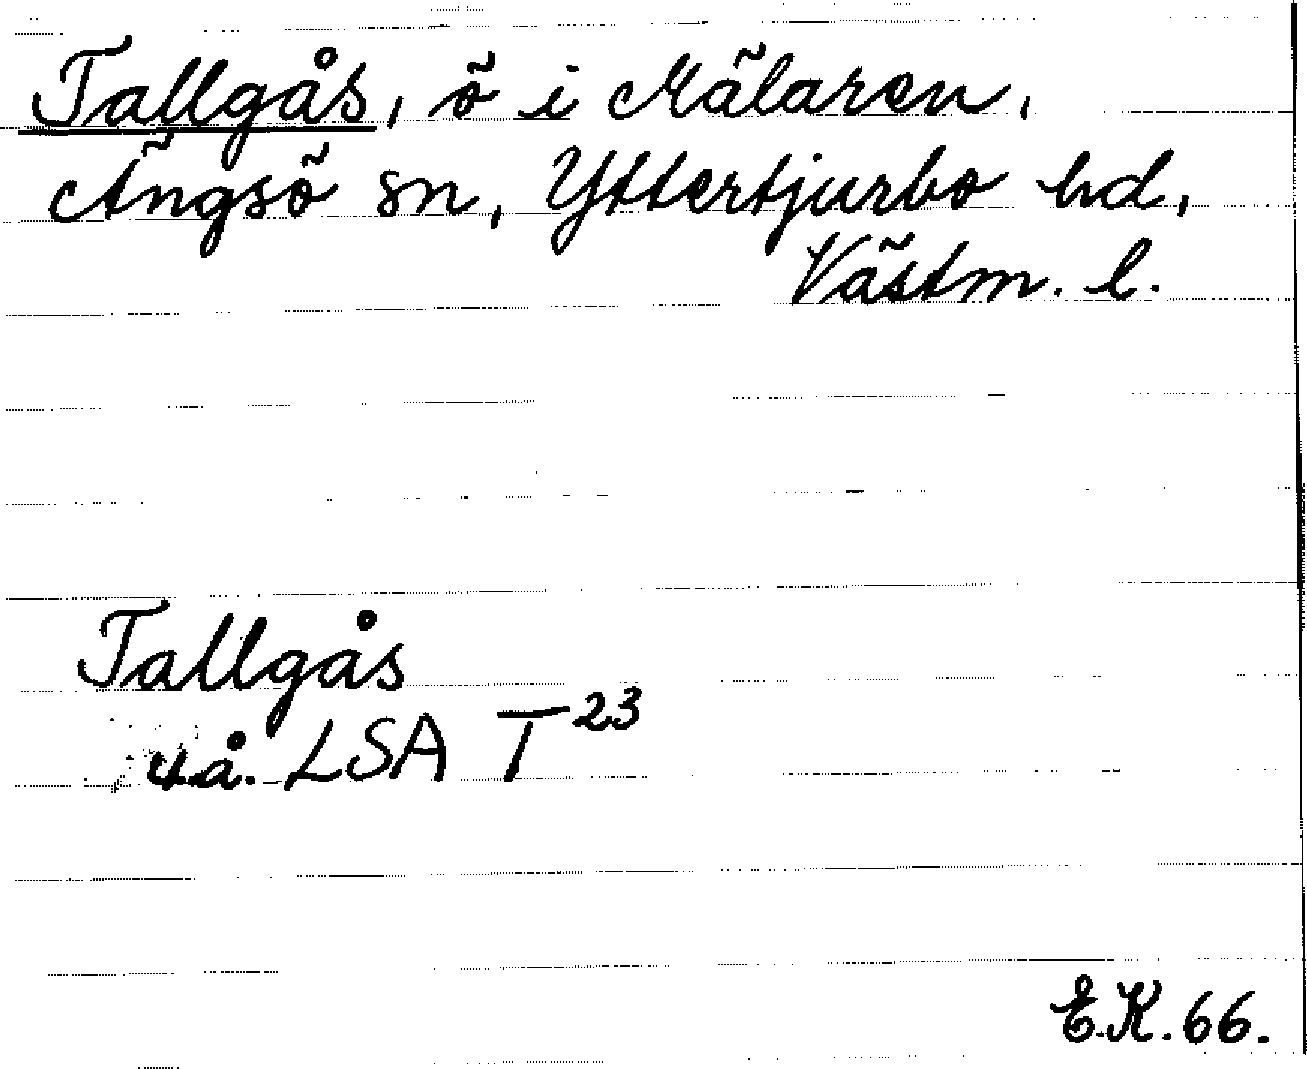 Tallgås, ö i Mälaren,
Ängsö sn, Yttertjurbo hd,
Västm. l.
Tallgås
u.å. LSA T23
E.K. 66.